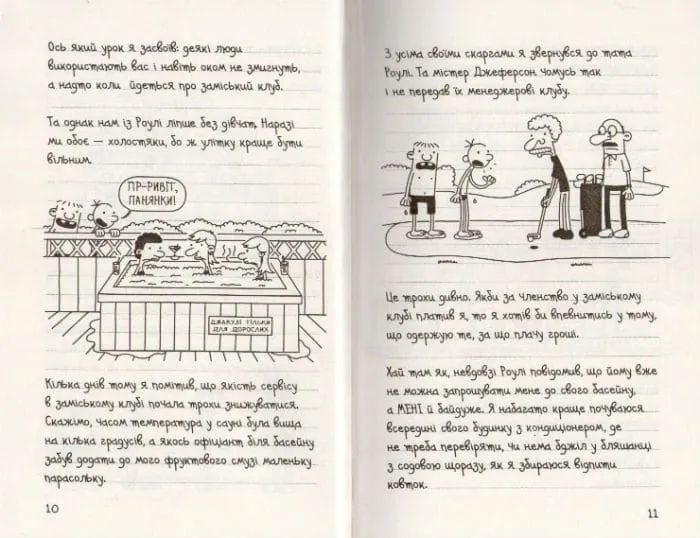 Ось який урок я засвоїв: деякі люди
використають вас і навіть оком не змигнуть,
а надто коли йдеться про заміський клуб.
Та однак нам із Роулі ліпше без дівчат. Наразі
ми обоє — холостяки, бо ж улітку краще бути
вільним.
ПР-РИВІТ,
ПАНЯНКИ!
ДЖАКУЗІ ТІЛЬКИ
ДЛЯ ДОРОСЛИХ
Кілька днів тому я помітив, що якість сервісу
в заміському клубі почала трохи знижуватися.
Скажімо, часом температура у сауні була вища
на кілька градусів, а якось офіціант біля басейну
забув додати до мого фруктового смузі маленьку
парасольку.
10
З усіма своїми скаргами я звернувся до тата
Роулі. Та містер Джеферсон чомусь так
і не передав їх менеджерові клубу.
Це трохи дивно. Якби за членство у заміському
клубі платив я, то я хотів би впевнитись у тому,
що одержую те, за що плачу гроші.
Хай там як, невдовзі Роулі повідомив, що йому вже
не можна запрошувати мене до свого басейну,
а МЕНІ й байдуже. Я набагато краще почуваюся
всередині свого будинку з кондиціонером, де
не треба перевіряти, чи нема бджіл у бляшанці
з содовою щоразу, як я збираюся відпити
ковток.
11